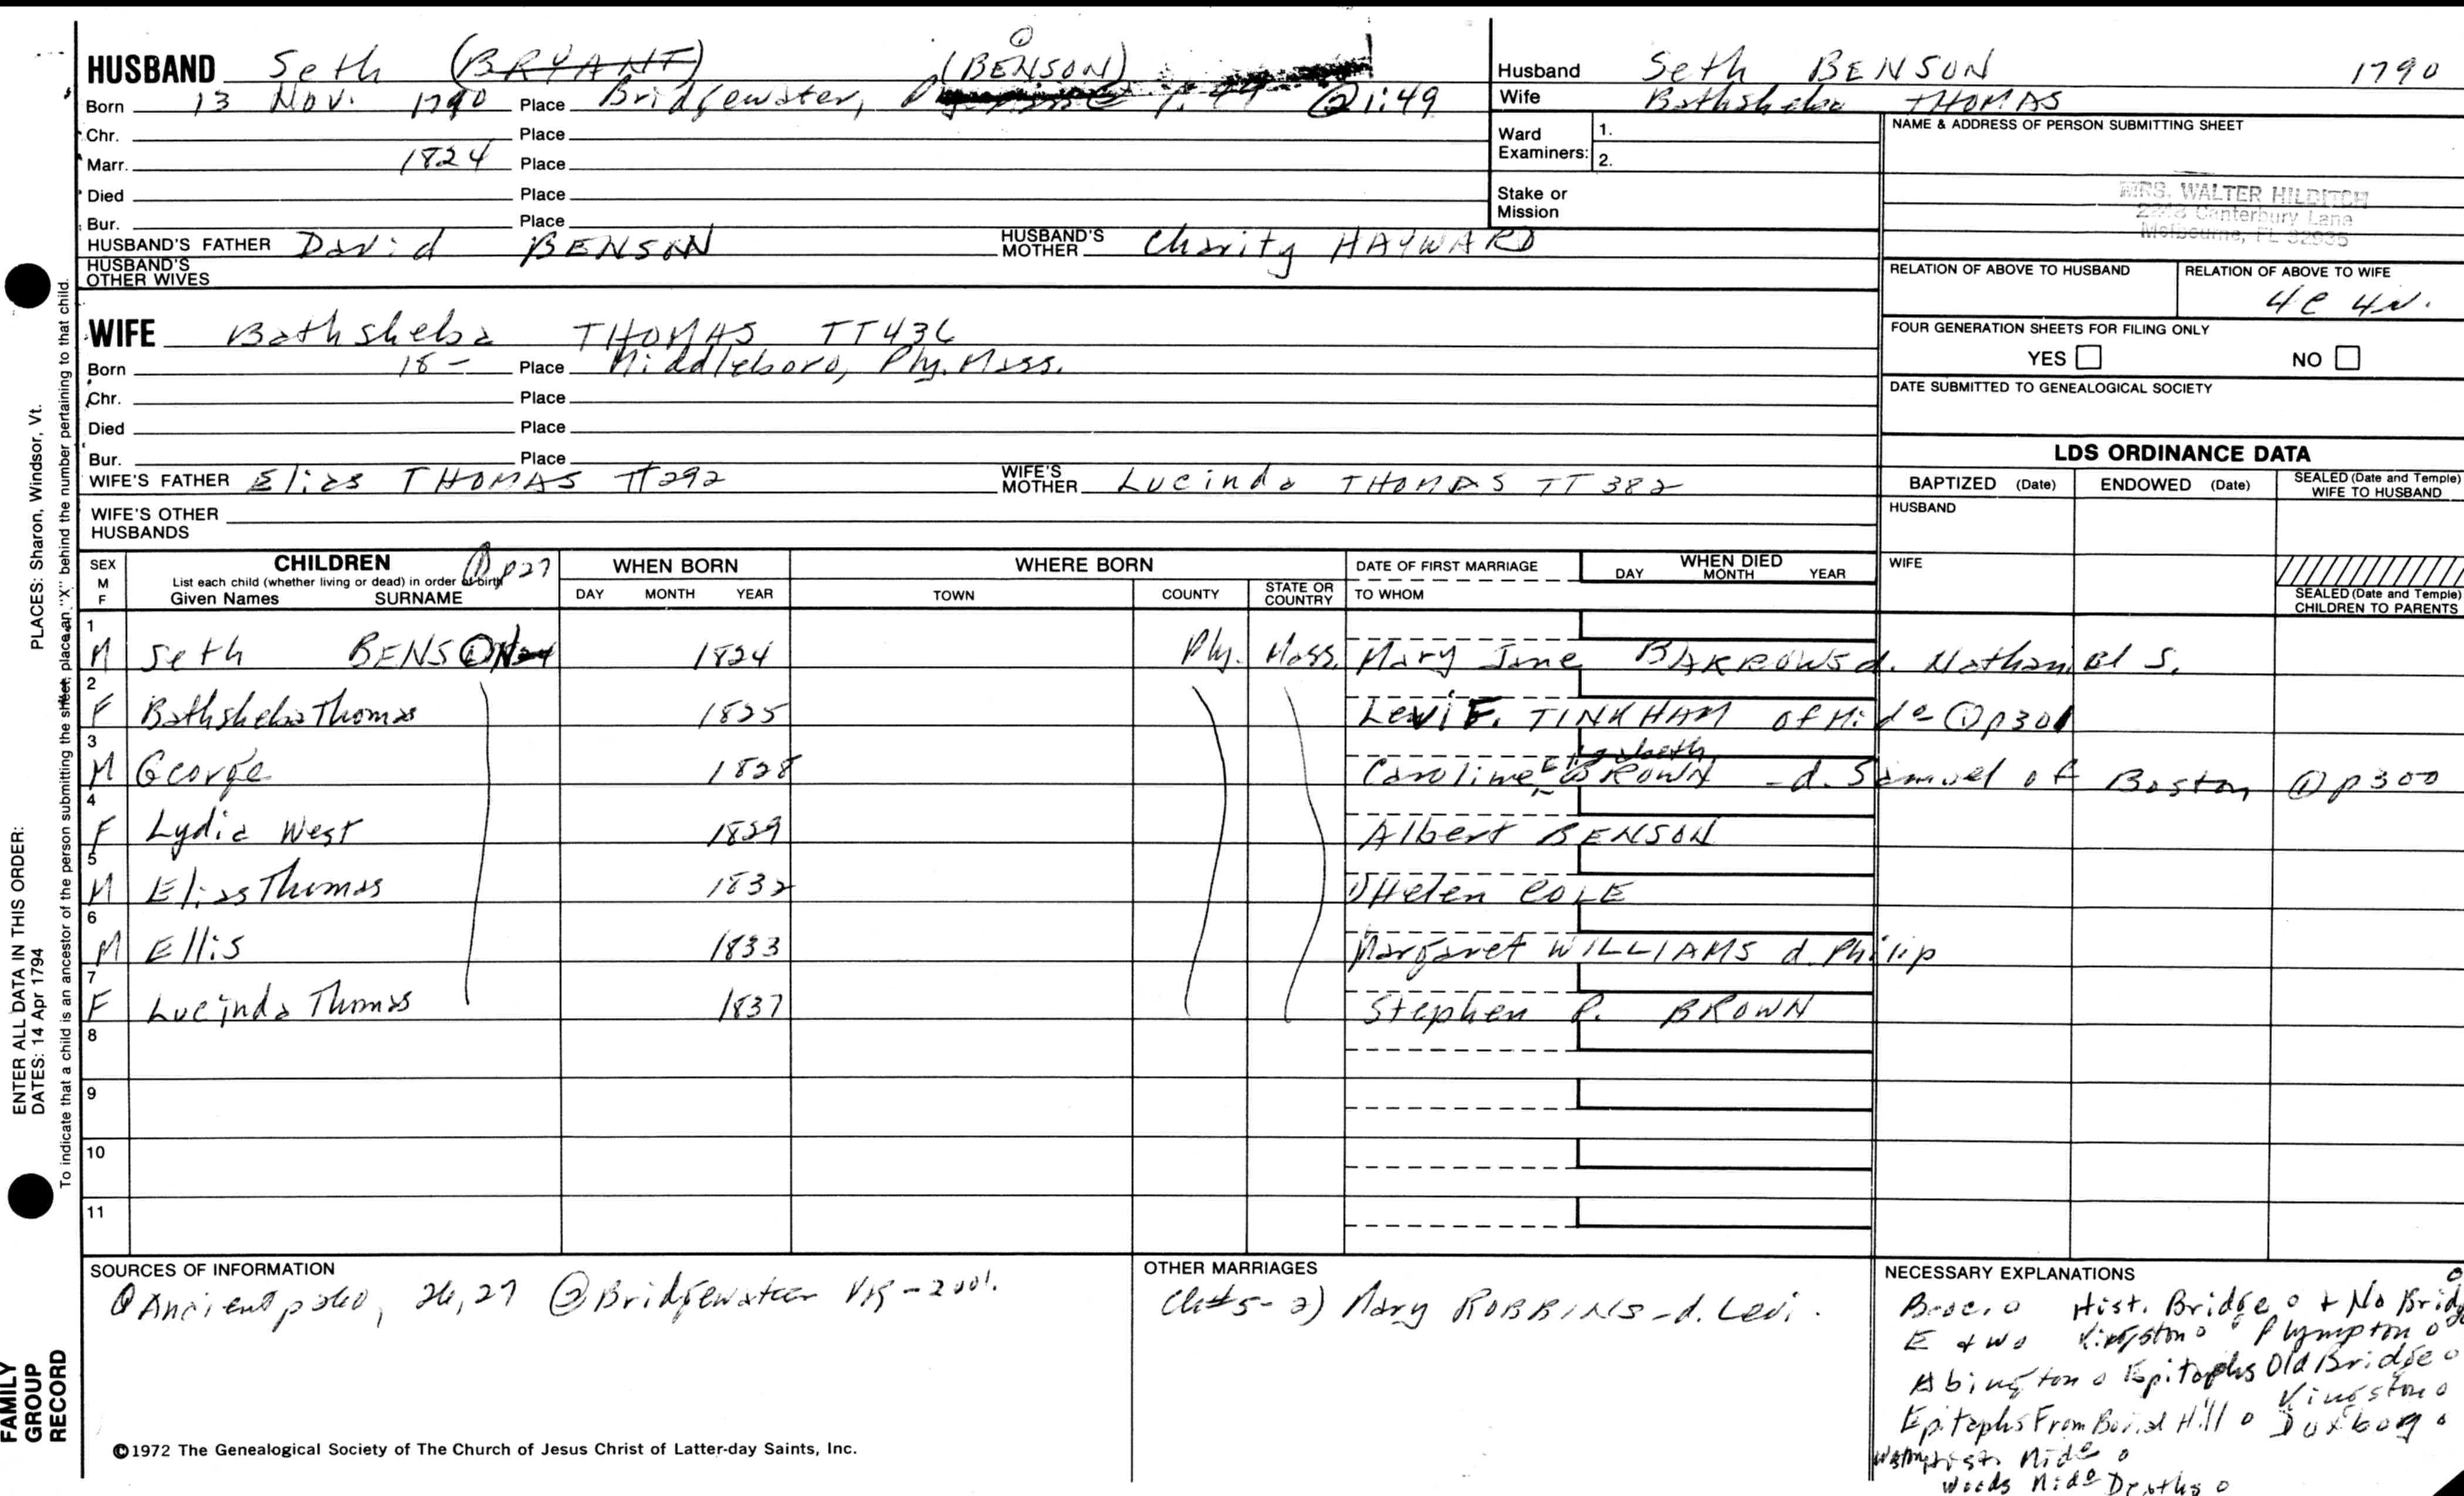 HUSBAND Seth (BRYANT) (BENSON) ①
Born 13 Nov. 1790 Place Bridgewater, ② 1:49
Chr. Place
Marr. 1824 Place
Died Place
Bur. Place
HUSBAND'S FATHER David BENSON HUSBAND'S MOTHER Charity HAYWARD
HUSBAND'S OTHER WIVES
Husband Seth BENSON 1790
Wife Bathsheba THOMAS
Ward Examiners: 1.
2.
Stake or Mission
NAME & ADDRESS OF PERSON SUBMITTING SHEET
MRS. WALTER HILDITCH
Canterbury Lane
Melbourne, FL 32935
RELATION OF ABOVE TO HUSBAND RELATION OF ABOVE TO WIFE
4C 4N.
FOUR GENERATION SHEETS FOR FILING ONLY
YES NO
DATE SUBMITTED TO GENEALOGICAL SOCIETY
WIFE Bathsheba THOMAS TT436
Born 18- Place Middleboro, Ply. Mass.
Chr. Place
Died Place
Bur. Place
WIFE'S FATHER Elias THOMAS TT292 WIFE'S MOTHER Lucinda THOMAS TT 382
WIFE'S OTHER HUSBANDS
LDS ORDINANCE DATA
BAPTIZED (Date) ENDOWED (Date) SEALED (Date and Temple) WIFE TO HUSBAND
HUSBAND
WIFE
SEALED (Date and Temple) CHILDREN TO PARENTS
SEX M F CHILDREN ① p27 WHEN BORN WHERE BORN DATE OF FIRST MARRIAGE WHEN DIED
List each child (whether living or dead) in order of birth
Given Names SURNAME DAY MONTH YEAR TOWN COUNTY STATE OR COUNTRY TO WHOM DAY MONTH YEAR
1 M Seth BENSON 1824 Ply. Mass. Mary Jane BARROWS d. Nathaniel S.
2 F Bathsheba Thomas 1825 Levi F. TINKHAM of Mido ① p301
3 M George 1828 Caroline Elizabeth BROWN - d. Samuel of Boston ① p300
4 F Lydia West 1829 Albert BENSON
5 M Elias Thomas 1832 1) Helen COLE
6 M Ellis 1833 Margaret WILLIAMS d. Philip
7 F Lucinda Thomas 1837 Stephen P. BROWN
8
9
10
11
SOURCES OF INFORMATION
① Ancient p 26, 27 ② Bridgewater VR - 2 vol.
OTHER MARRIAGES
Ch#5- 2) Mary ROBBINS - d. Levi.
NECESSARY EXPLANATIONS
Hist. Bridge o + No Bridg
E + W o Kingston o Plympton o
Abington o Epitaphs Old Bridge o
Kingston o
Epitaphs From Burial Hill o Duxborg o
Mido o
Woods Mido Deaths o
©1972 The Genealogical Society of The Church of Jesus Christ of Latter-day Saints, Inc.
FAMILY GROUP RECORD
ENTER ALL DATA IN THIS ORDER:
DATES: 14 Apr 1794 PLACES: Sharon, Windsor, Vt.
To indicate that a child is an ancestor of the person submitting the sheet, place an "X" behind the number pertaining to that child.